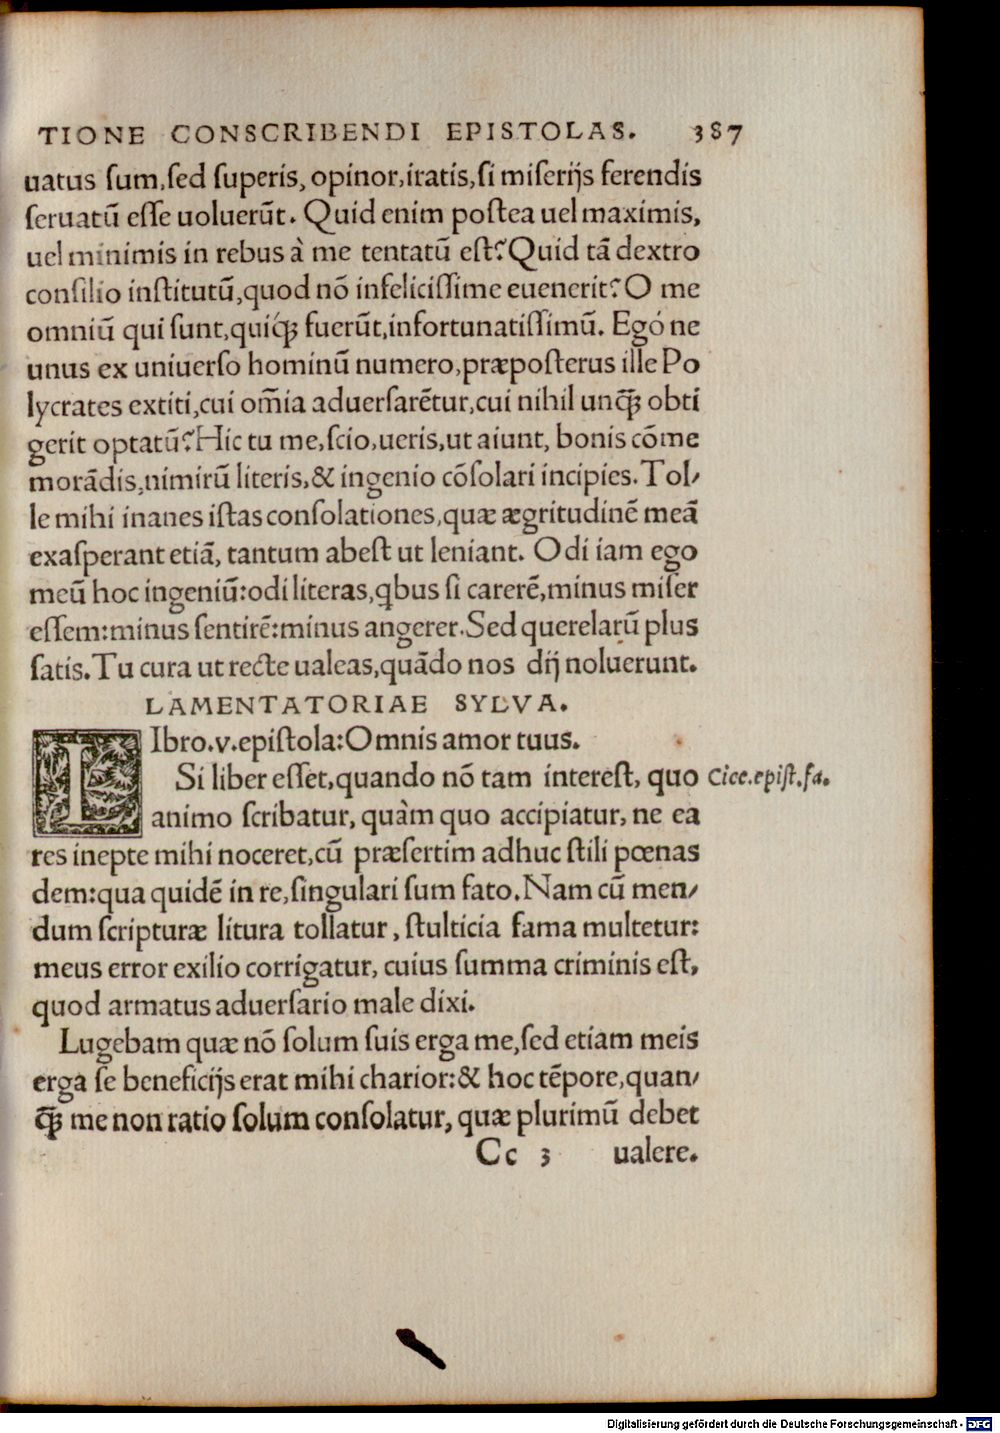 TIONE CONSCRIBENDI EPISTOLAS. 387
uatus ſum,ſed ſuperis, opinor,iratis,ſi miſerijs ferendis
ſeruatũ eſſe uoluerũt. Quid enim poſtea uel maximis,
uel minimis in rebus à me tentatũ eſt? Quid tã dextro
conſilio inſtitutũ,quod nõ infeliciſſime euenerit? O me
omniũ qui ſunt,quiq́; fuerũt,infortunatiſſimũ. Egó ne
unus ex uniuerſo hominũ numero,præpoſterus ille Po
lycrates extiti,cui om̃ia aduerſarẽtur,cui nihil unq̃; obti
gerit optatũ? Hic tu me,ſcio,ueris,ut aiunt, bonis cõme
morãdis,nimirũ literis,& ingenio cõſolari incipies. Tol/
le mihi inanes iſtas conſolationes,quæ ægritudinẽ meã
exaſperant etiã, tantum abeſt ut leniant. Odi iam ego
meũ hoc ingeniũ:odi literas,qbus ſi carerẽ,minus miſer
eſſem:minus ſentirẽ:minus angerer.Sed querelarũ plus
ſatis.Tu cura ut recte ualeas,quãdo nos dij noluerunt.
LAMENTATORIAE SYLVA.
LIbro.v.epiſtola:Omnis amor tuus.
Si liber eſſet,quando nõ tam intereſt, quo Cice.epiſt.fa.
animo ſcribatur, quàm quo accipiatur, ne ea
res inepte mihi noceret,cũ præſertim adhuc ſtili pœnas
dem:qua quidẽ in re,ſingulari ſum fato.Nam cũ men/
dum ſcripturæ litura tollatur, ſtulticia fama multetur:
meus error exilio corrigatur, cuius ſumma criminis eſt,
quod armatus aduerſario male dixi.
Lugebam quæ nõ ſolum ſuis erga me,ſed etiam meis
erga ſe beneficijs erat mihi charior:& hoc tẽpore,quan/
q̃; me non ratio ſolum conſolatur, quæ plurimũ debet
Cc 3 ualere.
Digitalisierung gefördert durch die Deutsche Forschungsgemeinschaft - DFG